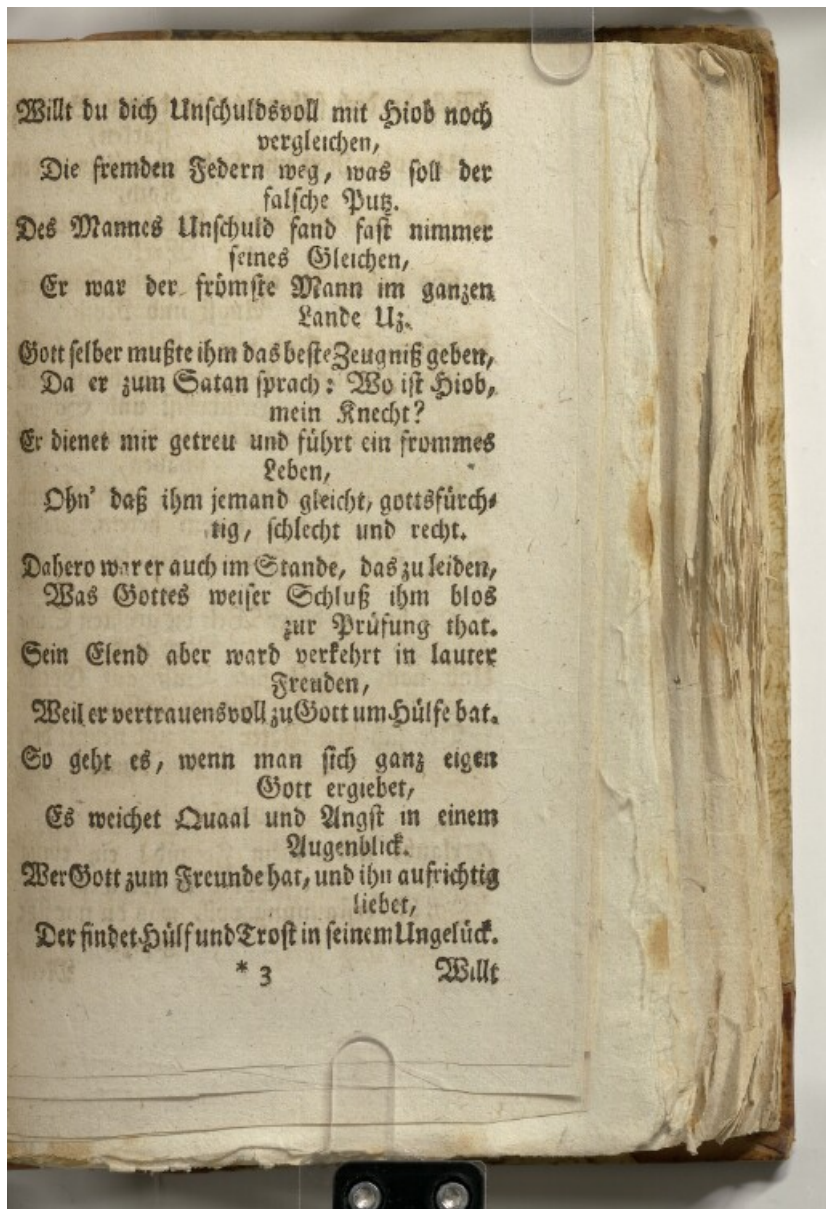 Willt du dich Unschuldsvoll mit Hiob noch
vergleichen,
Die fremden Federn weg, was soll der
falsche Putz.
Des Mannes Unschuld fand fast nimmer
seines Gleichen,
Er war der frömste Mann im ganzen
Lande Uz.
Gott selber mußte ihm das beste Zeugniß geben,
Da er zum Satan sprach: Wo ist Hiob,
mein Knecht?
Er dienet mir getreu und führt ein frommes
Leben,
Ohn' daß ihm jemand gleicht, gottsfürch-
tig, schlecht und recht.
Dahero war er auch im Stande, das zu leiden,
Was Gottes weiser Schluß ihm blos
zur Prüfung that.
Sein Elend aber ward verkehrt in lauter
Freuden,
Weil er vertrauensvoll zu Gott um Hülfe bat.
So geht es, wenn man sich ganz eigen
Gott ergiebet,
Es weichet Quaal und Angst in einem
Augenblick.
Wer Gott zum Freunde hat, und ihn aufrichtig
liebet,
Der findet Hülf und Trost in seinem Ungelück.
* 3 Willt